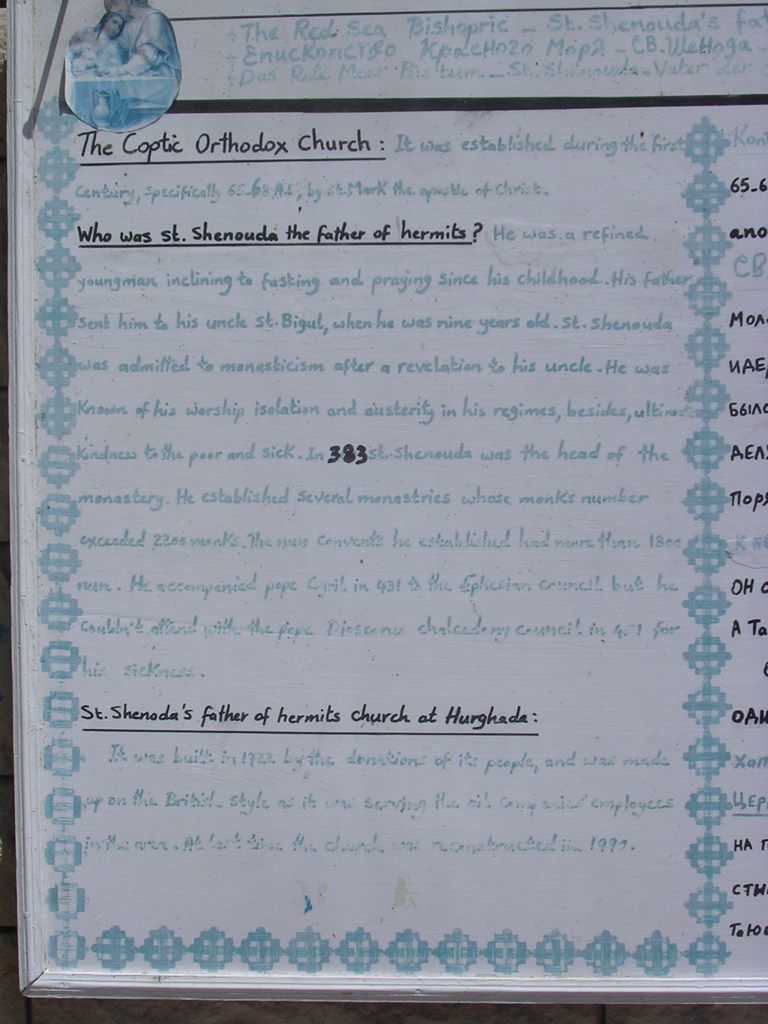 The Red Sea Bishopric - St. Shenouda's fat
Епископство Красного Моря - СВ. Шенода -
Das Rote Meer Bis'tum - St. Shenouda - Vater der
The Coptic Orthodox Church: It was established during the first
Century, Specifically 65-68 A.D, by St. Mark the apostle of Christ.
Who was st. Shenouda the father of hermits? He was a refined
youngman inclining to fasting and praying since his childhood. His father
sent him to his uncle St. Bigul, when he was nine years old. St. Shenouda
was admitted to monasticism after a revelation to his uncle. He was
Known of his worship isolation and austerity in his regimes, besides, ultimate
Kindness to the poor and sick. In 383 st. Shenouda was the head of the
monastery. He established several monastries whose monks number
exceeded 2200 monks. The nun convents he established had more than 1800
nun. He accompanied pope Cyril in 431 to the Ephesian council but he
Couldn't attend with the pope Dioscorus chalcedony council in 451 for
his sickness.
St. Shenoda's father of hermits church at Hurghada:
It was built in 1922 by the donations of its people, and was made
up on the British style as it was serving the oil companies' employees
in the area. At last time the church was reconstructed in 1990.
Коп
65-6
апо
СВ
Мол
ИДЕ
БЫЛ
ДЕЛ
Поря
К
ОН о
А Та
ОДИ
Хат
ЦЕР
НА П
СТИ
Таю